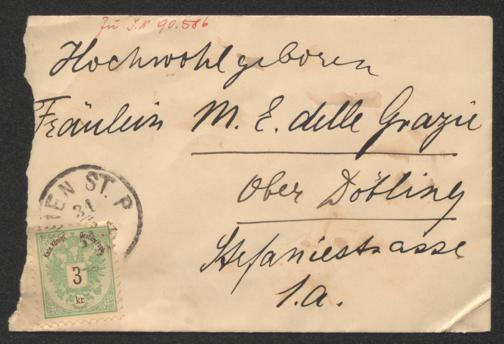 Zu I.N. 90.586
Hochwohlgeboren
Fräulein M. E. delle Grazie
Ober Döbling
Stefaniestrasse
1.a.
IEN ST. P
31
3
kr.